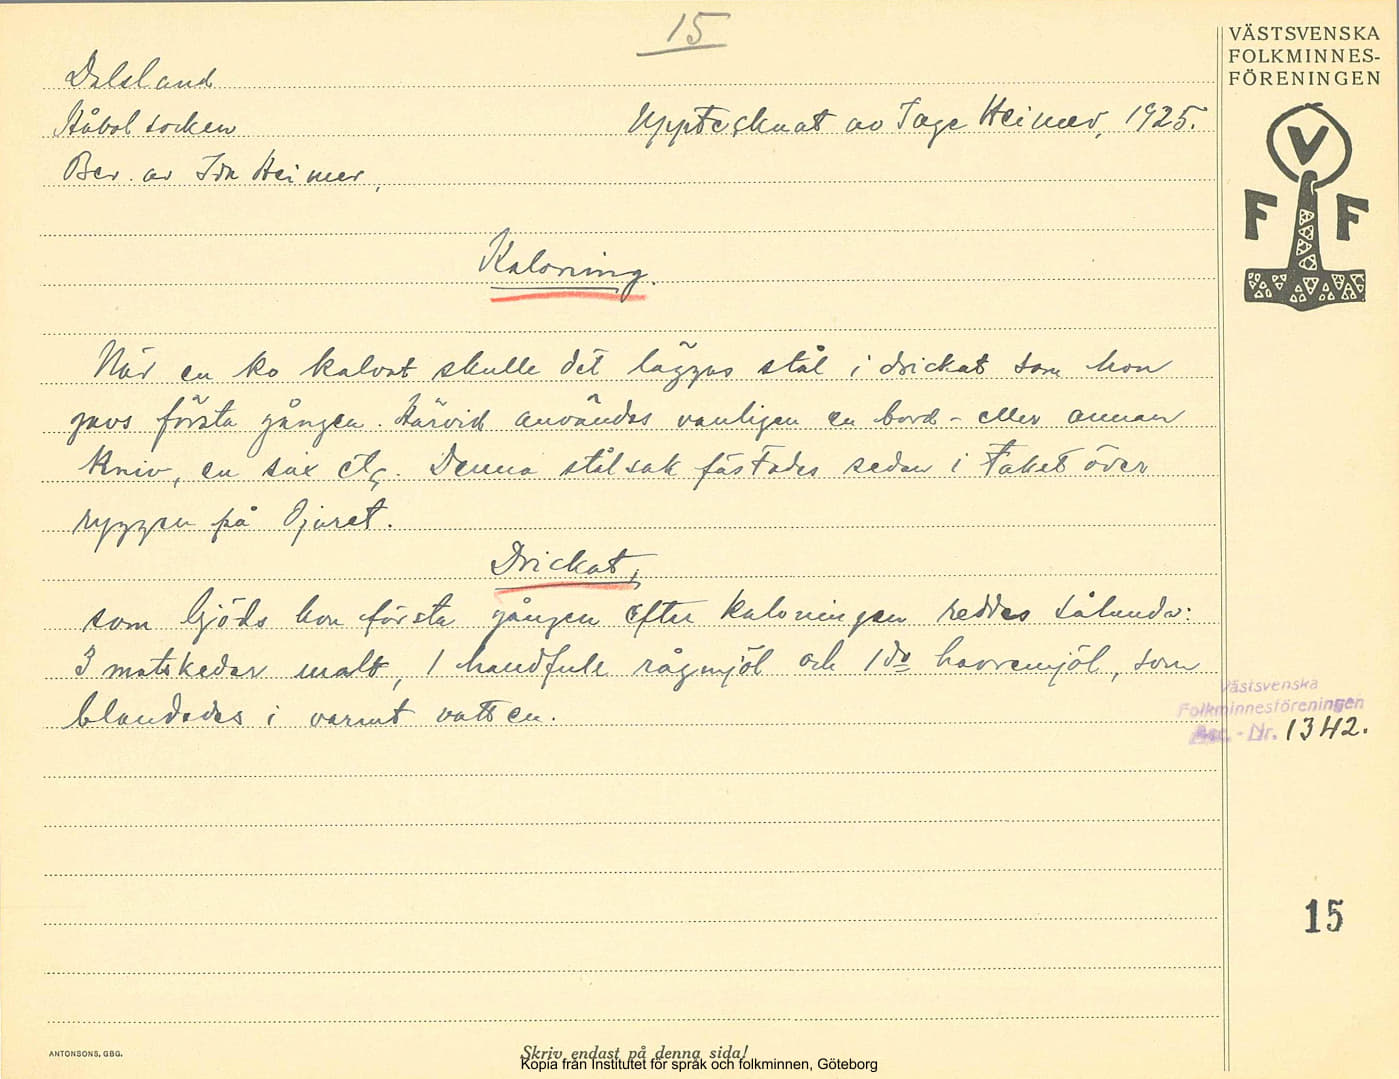 15
VÄSTSVENSKA
FOLKMINNES-
FÖRENINGEN
V
F F
Dalsland
Håbol socken
Upptecknat av Tage Heimer, 1925.
Ber. av Ida Heimer,
Kalvning.
När en ko kalvat skulle det läggas stål i drickat som hon
gavs första gången. Härvid användes vanligen en bord- eller annan
kniv, en sax etc. Denna stålsak fästades sedan i taket över
ryggen på djuret.
Drickat,
som bjöds kon första gången efter kalvningen reddes sålunda:
3 matskedar malt, 1 handfull rågmjöl och 1 do havremjöl, som
blandades i varmt vatten.
Västsvenska
Folkminnesföreningen
Acc. - Nr. 1342.
15
ANTONSONS, GBG.
Skriv endast på denna sida!
Kopia från Institutet för språk och folkminnen, Göteborg